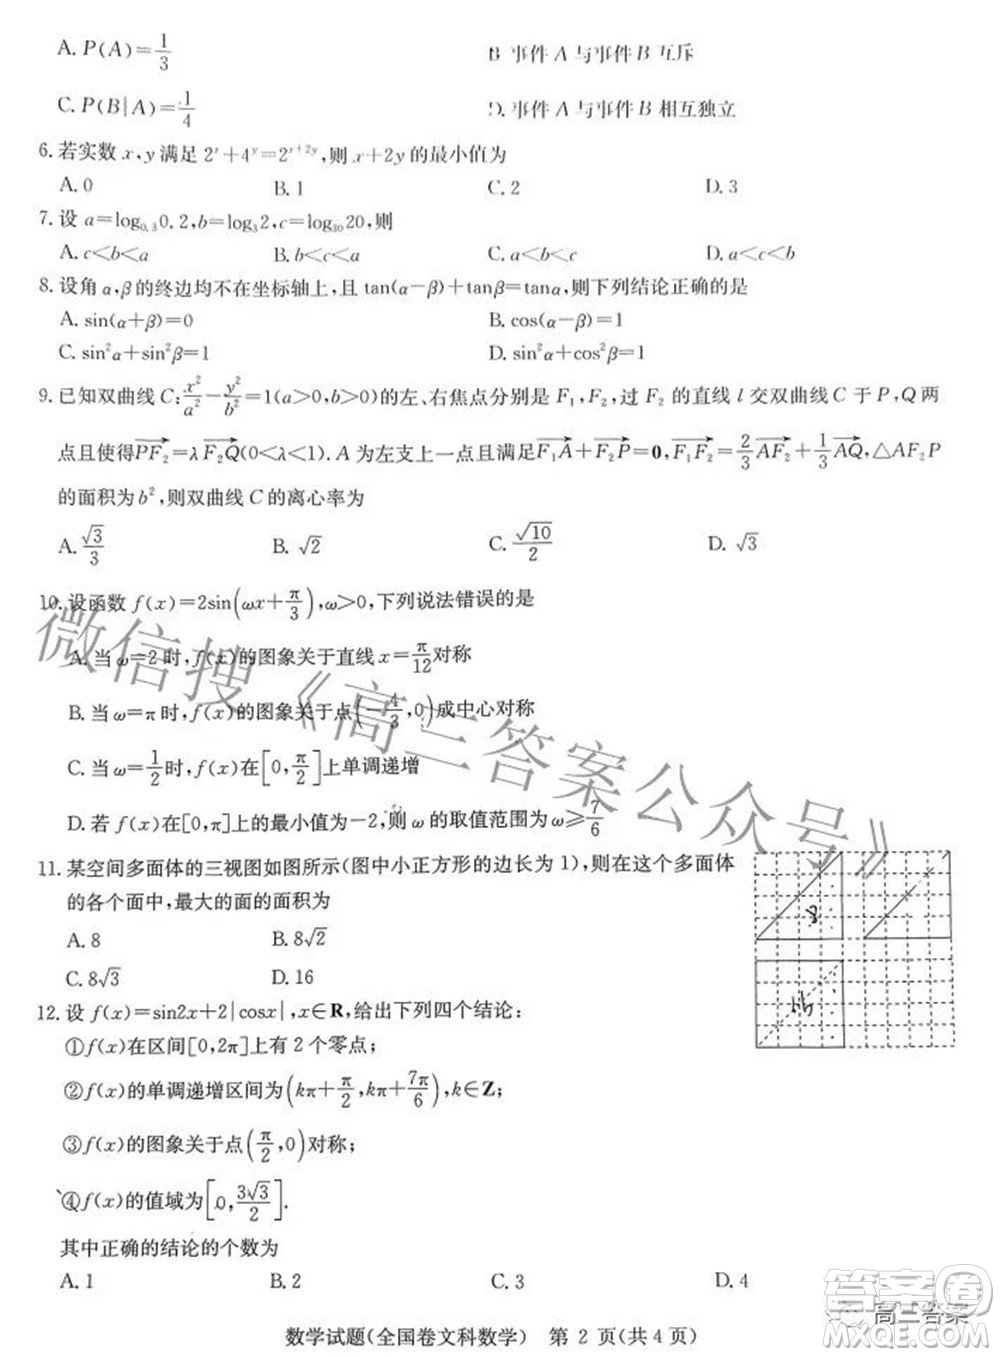 A. P(A)=1/3 B. 事件 A 与事件 B 互斥
C. P(B|A)=1/4 D. 事件 A 与事件 B 相互独立
6. 若实数 x,y 满足 2^x+4^y=2^(x+2y),则 x+2y 的最小值为
A. 0 B. 1 C. 2 D. 3
7. 设 a=log_0.3 0.2,b=log_3 2,c=log_30 20,则
A. c<b<a B. b<c<a C. a<b<c D. a<c<b
8. 设角 α,β 的终边均不在坐标轴上,且 tan(α-β)+tanβ=tanα,则下列结论正确的是
A. sin(α+β)=0 B. cos(α-β)=1
C. sin²α+sin²β=1 D. sin²α+cos²β=1
9. 已知双曲线 C:x²/a²-y²/b²=1(a>0,b>0)的左、右焦点分别是 F₁,F₂,过 F₂ 的直线 l 交双曲线 C 于 P,Q 两
点且使得→PF₂=λ→F₂Q(0<λ<1). A 为左支上一点且满足→F₁A+→F₂P=0,→F₁F₂=2/3→AF₂+1/3→AQ,△AF₂P
的面积为 b²,则双曲线 C 的离心率为
A. √3/3 B. √2 C. √10/2 D. √3
10. 设函数 f(x)=2sin(ωx+π/3),ω>0,下列说法错误的是
A. 当 ω=2 时,f(x)的图象关于直线 x=π/12对称
B. 当 ω=π 时,f(x)的图象关于点(-4/3,0)成中心对称
C. 当 ω=1/2时,f(x)在[0,π/2]上单调递增
D. 若 f(x)在[0,π]上的最小值为-2,则 ω 的取值范围为 ω≥7/6
11. 某空间多面体的三视图如图所示(图中小正方形的边长为 1),则在这个多面体
的各个面中,最大的面的面积为
A. 8 B. 8√2
C. 8√3 D. 16
12. 设 f(x)=sin2x+2|cosx|,x∈R,给出下列四个结论:
①f(x)在区间[0,2π]上有 2 个零点;
②f(x)的单调递增区间为(kπ+π/2,kπ+7π/6),k∈Z;
③f(x)的图象关于点(π/2,0)对称;
④f(x)的值域为[0,3√3/2].
其中正确的结论的个数为
A. 1 B. 2 C. 3 D. 4
数学试题(全国卷文科数学) 第 2 页(共 4 页)
微信搜《高三答案公众号》
答案卷
高三答案